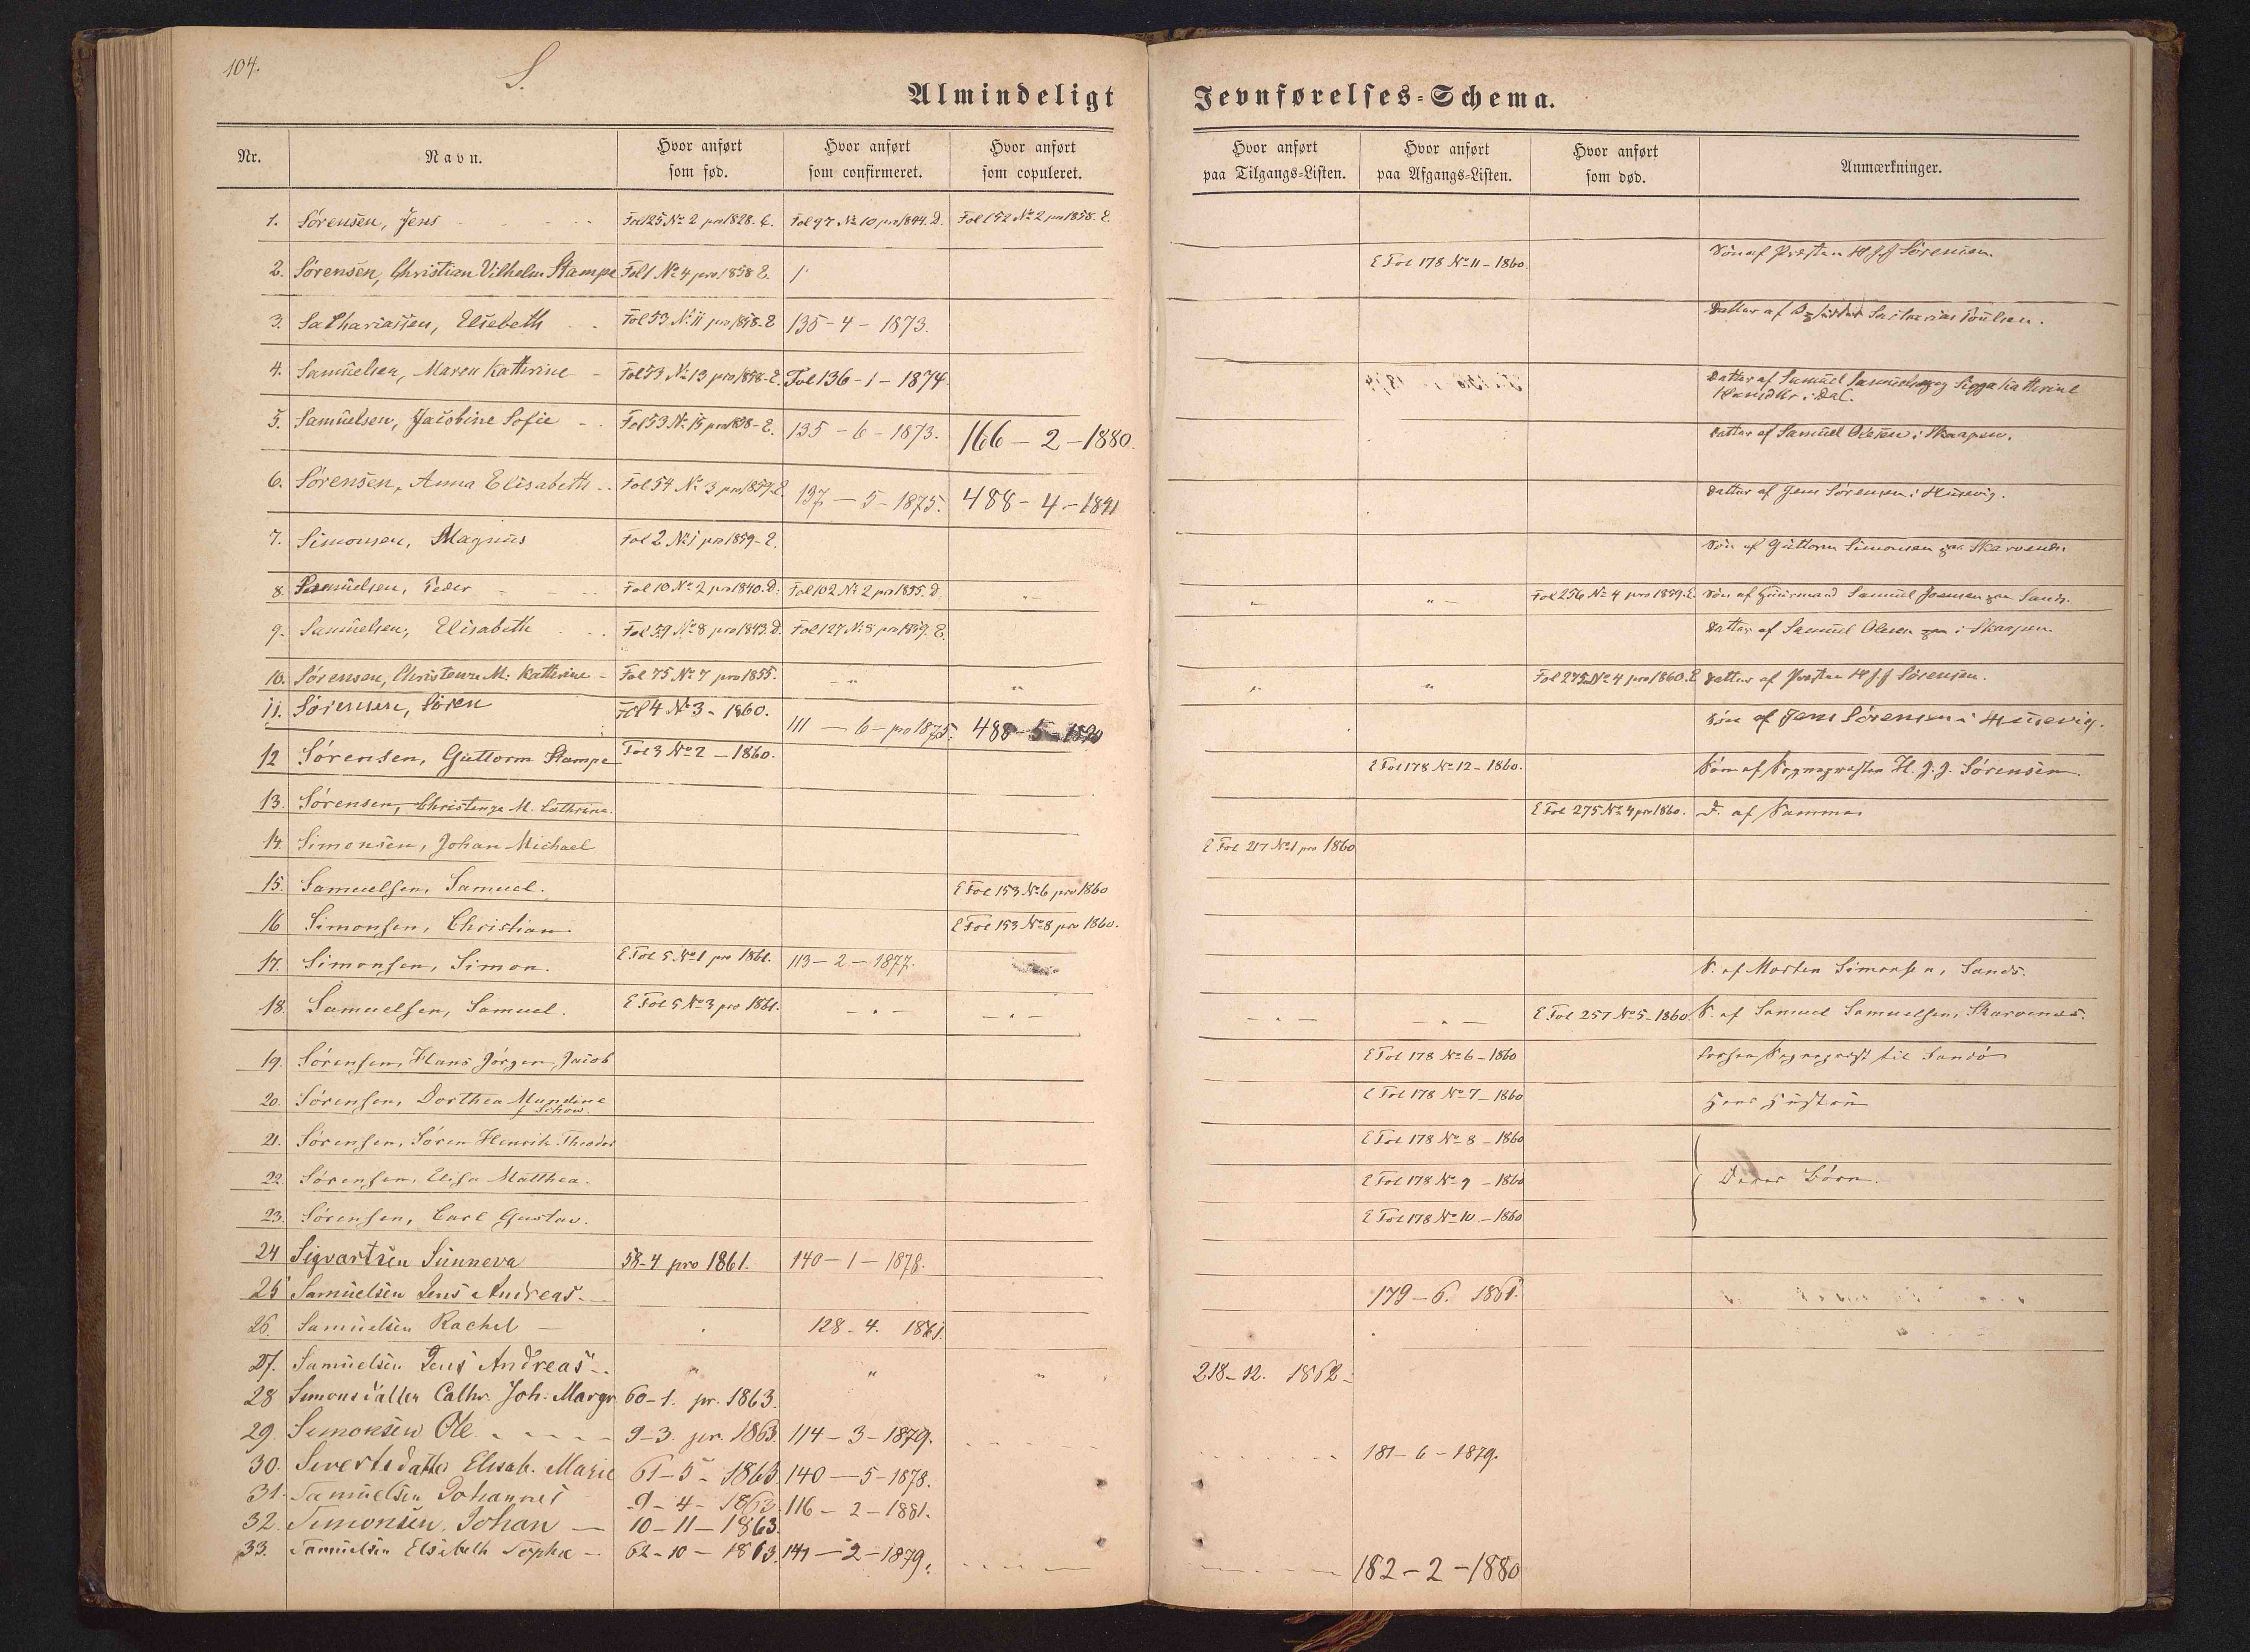 104.
S.
Almindeligt Jevnførelses-Schema.
Nr. Navn. Hvor anført som fød. Hvor anført som confirmeret. Hvor anført som copuleret. Hvor anført paa Tilgangs-Listen. Hvor anført paa Afgangs-Listen. Hvor anført som død. Anmærkninger.
1. Sørensen, Jens Fol 125 No 2 pro 1828. C. Fol 97 No 10 pro 1844. D. Fol 152 No 2 pro 1858. E.
2. Sørensen, Christian Vilhelm Stampe Fol 1 No 4 pro 1858 E. E Fol 178 No 11 - 1860. Søn af Præsten H J J Sørensen.
3. Sakhariassen, Elsebeth Fol 53 No 11 pro 1858-E 135 - 4 - 1873. Datter af
4. Samuelsen, Maren Kathrine - Fol 53 No 13 pro 1858-E. Fol 136 - 1 - 1874. Datter af Samuel Samuelsen og Sigga Kathrine
Hansdtr i Dal.
5. Samuelsen, Jacobine Sofie - Fol 53 No 15 pro 1858-E. 135 - 6 - 1873. 166 - 2 - 1880. Datter af Samuel Olesen i Skaapen.
6. Sørensen, Anna Elisabeth Fol 54 No 3 pro 1859-E. 137 - 5 - 1875. 488 - 4 - 1891 Datter af Jens Sørensen i Husevig.
7. Simonsen, Magnus Fol 2 No 1 pro 1859-E. Søn af Guttorm Simonsen Skarvenæs.
8. Samuelsen, Peder Fol 10 No 2 pro 1840. D. Fol 102 No 2 pro 1855. D. " " " Fol 256 No 4 pro 1859. E. Søn af Huusmand Samuel Joensen paa Sand.
9. Samuelsen, Elisabeth Fol 59 No 8 pro 1843. D. Fol 127 No 8 pro 1859. E. Datter af Samuel Olesen i Skaapen.
10. Sørensen, Christenze M. Kathrine - Fol 75 No 7 pro 1855. " " " " Fol 275 No 4 pro 1860. E. Datter af Præsten H J J Sørensen.
11. Sørensen, Søren Fol 4 No 3 - 1860. 111 - 6 - pro 1875. 488 - 5 - 1890 Søn af Jens Sørensen i Husevig.
12 Sørensen, Guttorm Stampe Fol 3 No 2 - 1860. E Fol 178 No 12 - 1860. Søn af Sognepræsten H. J. J. Sørensen.
13. Sørensen, Christenze M. Cathrine. E Fol 275 No 4 pro 1860. D. af Samme
14. Simonsen, Johan Michael E Fol 217 No 1 pro 1860
15. Samuelsen, Samuel. E Fol 153 No 6 pro 1860
16 Simonsen, Christian. E Fol 153 No 8 pro 1860.
17. Simonsen, Simon. E Fol 5 No 1 pro 1861. 113 - 2 - 1877. S. af Morten Simonsen, Sand.
18. Samuelsen, Samuel. E Fol 5 No 3 pro 1861. - " - - " - - " - - " - E Fol 257 No 5 - 1860. S. af Samuel Samuelsen, Skarvenæs.
19. Sørensen, Hans Jørgen Jacob E Fol 178 No 6 - 1860 Sognepræst til Sandø
20. Sørensen, Dorthea Mundine
f Schow. E Fol 178 No 7 - 1860 Hans Hustru
21. Sørensen, Søren Henrik Theodor E Fol 178 No 8 - 1860
22. Sørensen, Elisa Matthea. E Fol 178 No 9 - 1860 Deres Børn.
23. Sørensen, Carl Gustav. E Fol 178 No 10 - 1860
24 Sigvartsen Sunneva 58-4 pro 1861. 140 - 1 - 1878.
25 Samuelsen Jens Andreas. 179 - 6. 1861.
26. Samuelsen Rachel - 128 - 4. 1861.
27. Samuelsen Jens Andreas " " " 218 - 12. 1862
28 Simonsdatter Cathr. Joh. Margr. 60 - 1. pr. 1863.
29. Simonsen Ole 9 - 3. pr. 1863 114 - 3 - 1879. 181 - 6 - 1879.
30. Sivertsdatter Elisab. Marie 61 - 5 - 1863 140 - 5 - 1878.
31. Samuelsen Johannes 9 - 4 - 1863. 116 - 2 - 1881.
32. Simonsen, Johan - 10 - 11 - 1863.
33. Samuelsen Elsebeth Sophie - 62 - 10 - 1863. 141 - 2 - 1879. 182 - 2 - 1880